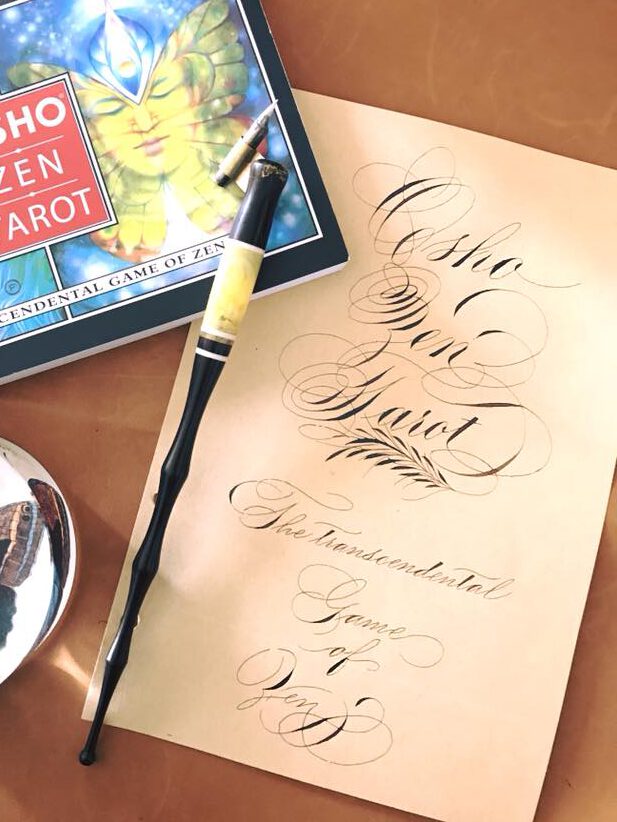 SHO
ZEN
TAROT
CENDENTAL GAME OF ZEN
Osho
Zen
Tarot
The transcendental
Game
of
Zen